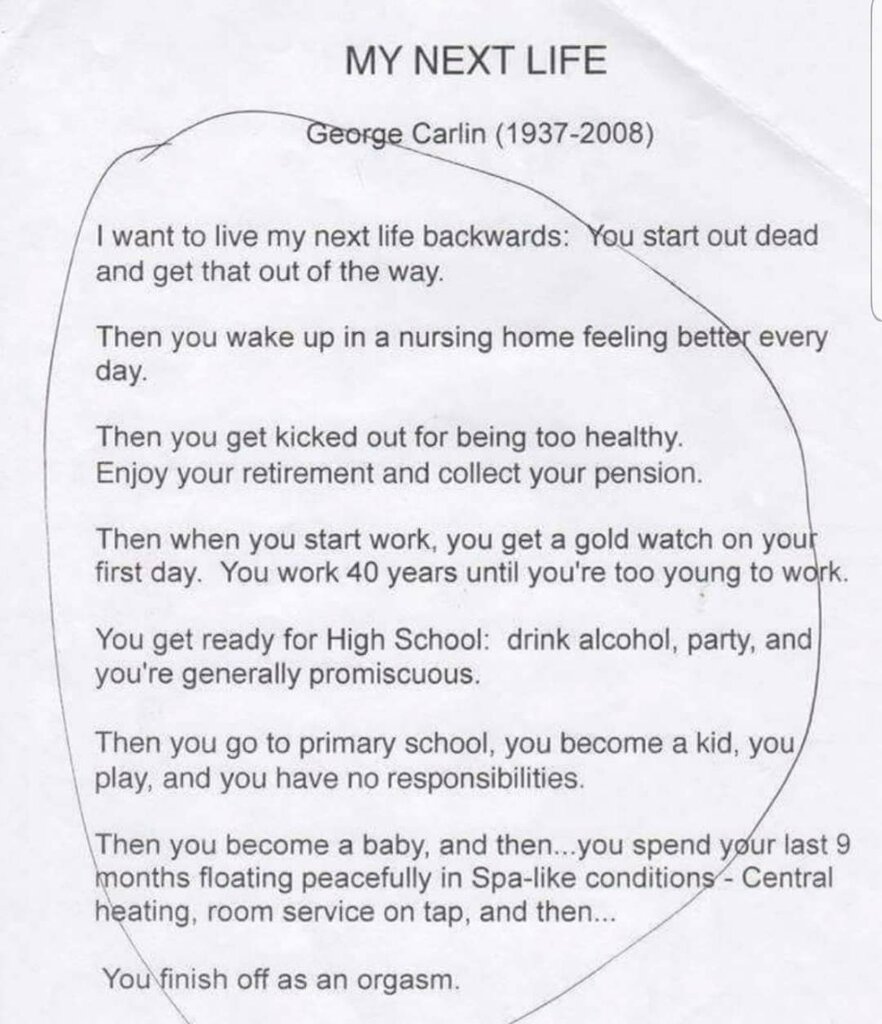 MY NEXT LIFE
George Carlin (1937-2008)
I want to live my next life backwards:  You start out dead
and get that out of the way.
Then you wake up in a nursing home feeling better every
day.
Then you get kicked out for being too healthy.
Enjoy your retirement and collect your pension.
Then when you start work, you get a gold watch on your
first day.  You work 40 years until you're too young to work.
You get ready for High School:  drink alcohol, party, and
you're generally promiscuous.
Then you go to primary school, you become a kid, you
play, and you have no responsibilities.
Then you become a baby, and then...you spend your last 9
months floating peacefully in Spa-like conditions - Central
heating, room service on tap, and then...
You finish off as an orgasm.